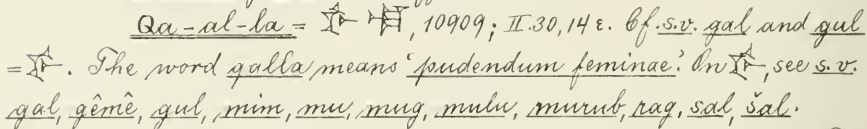 Qa-al-la = 𒊩 𒆷, 10909; II. 30, 14 ε. Cf. s.v. gal and gul
= 𒊩. The word galla means 'pudendum feminae'. On 𒊩, see s.v.
gal, gêmê, gul, mim, mu, mug, mulu, murub, rag, sal, šal.